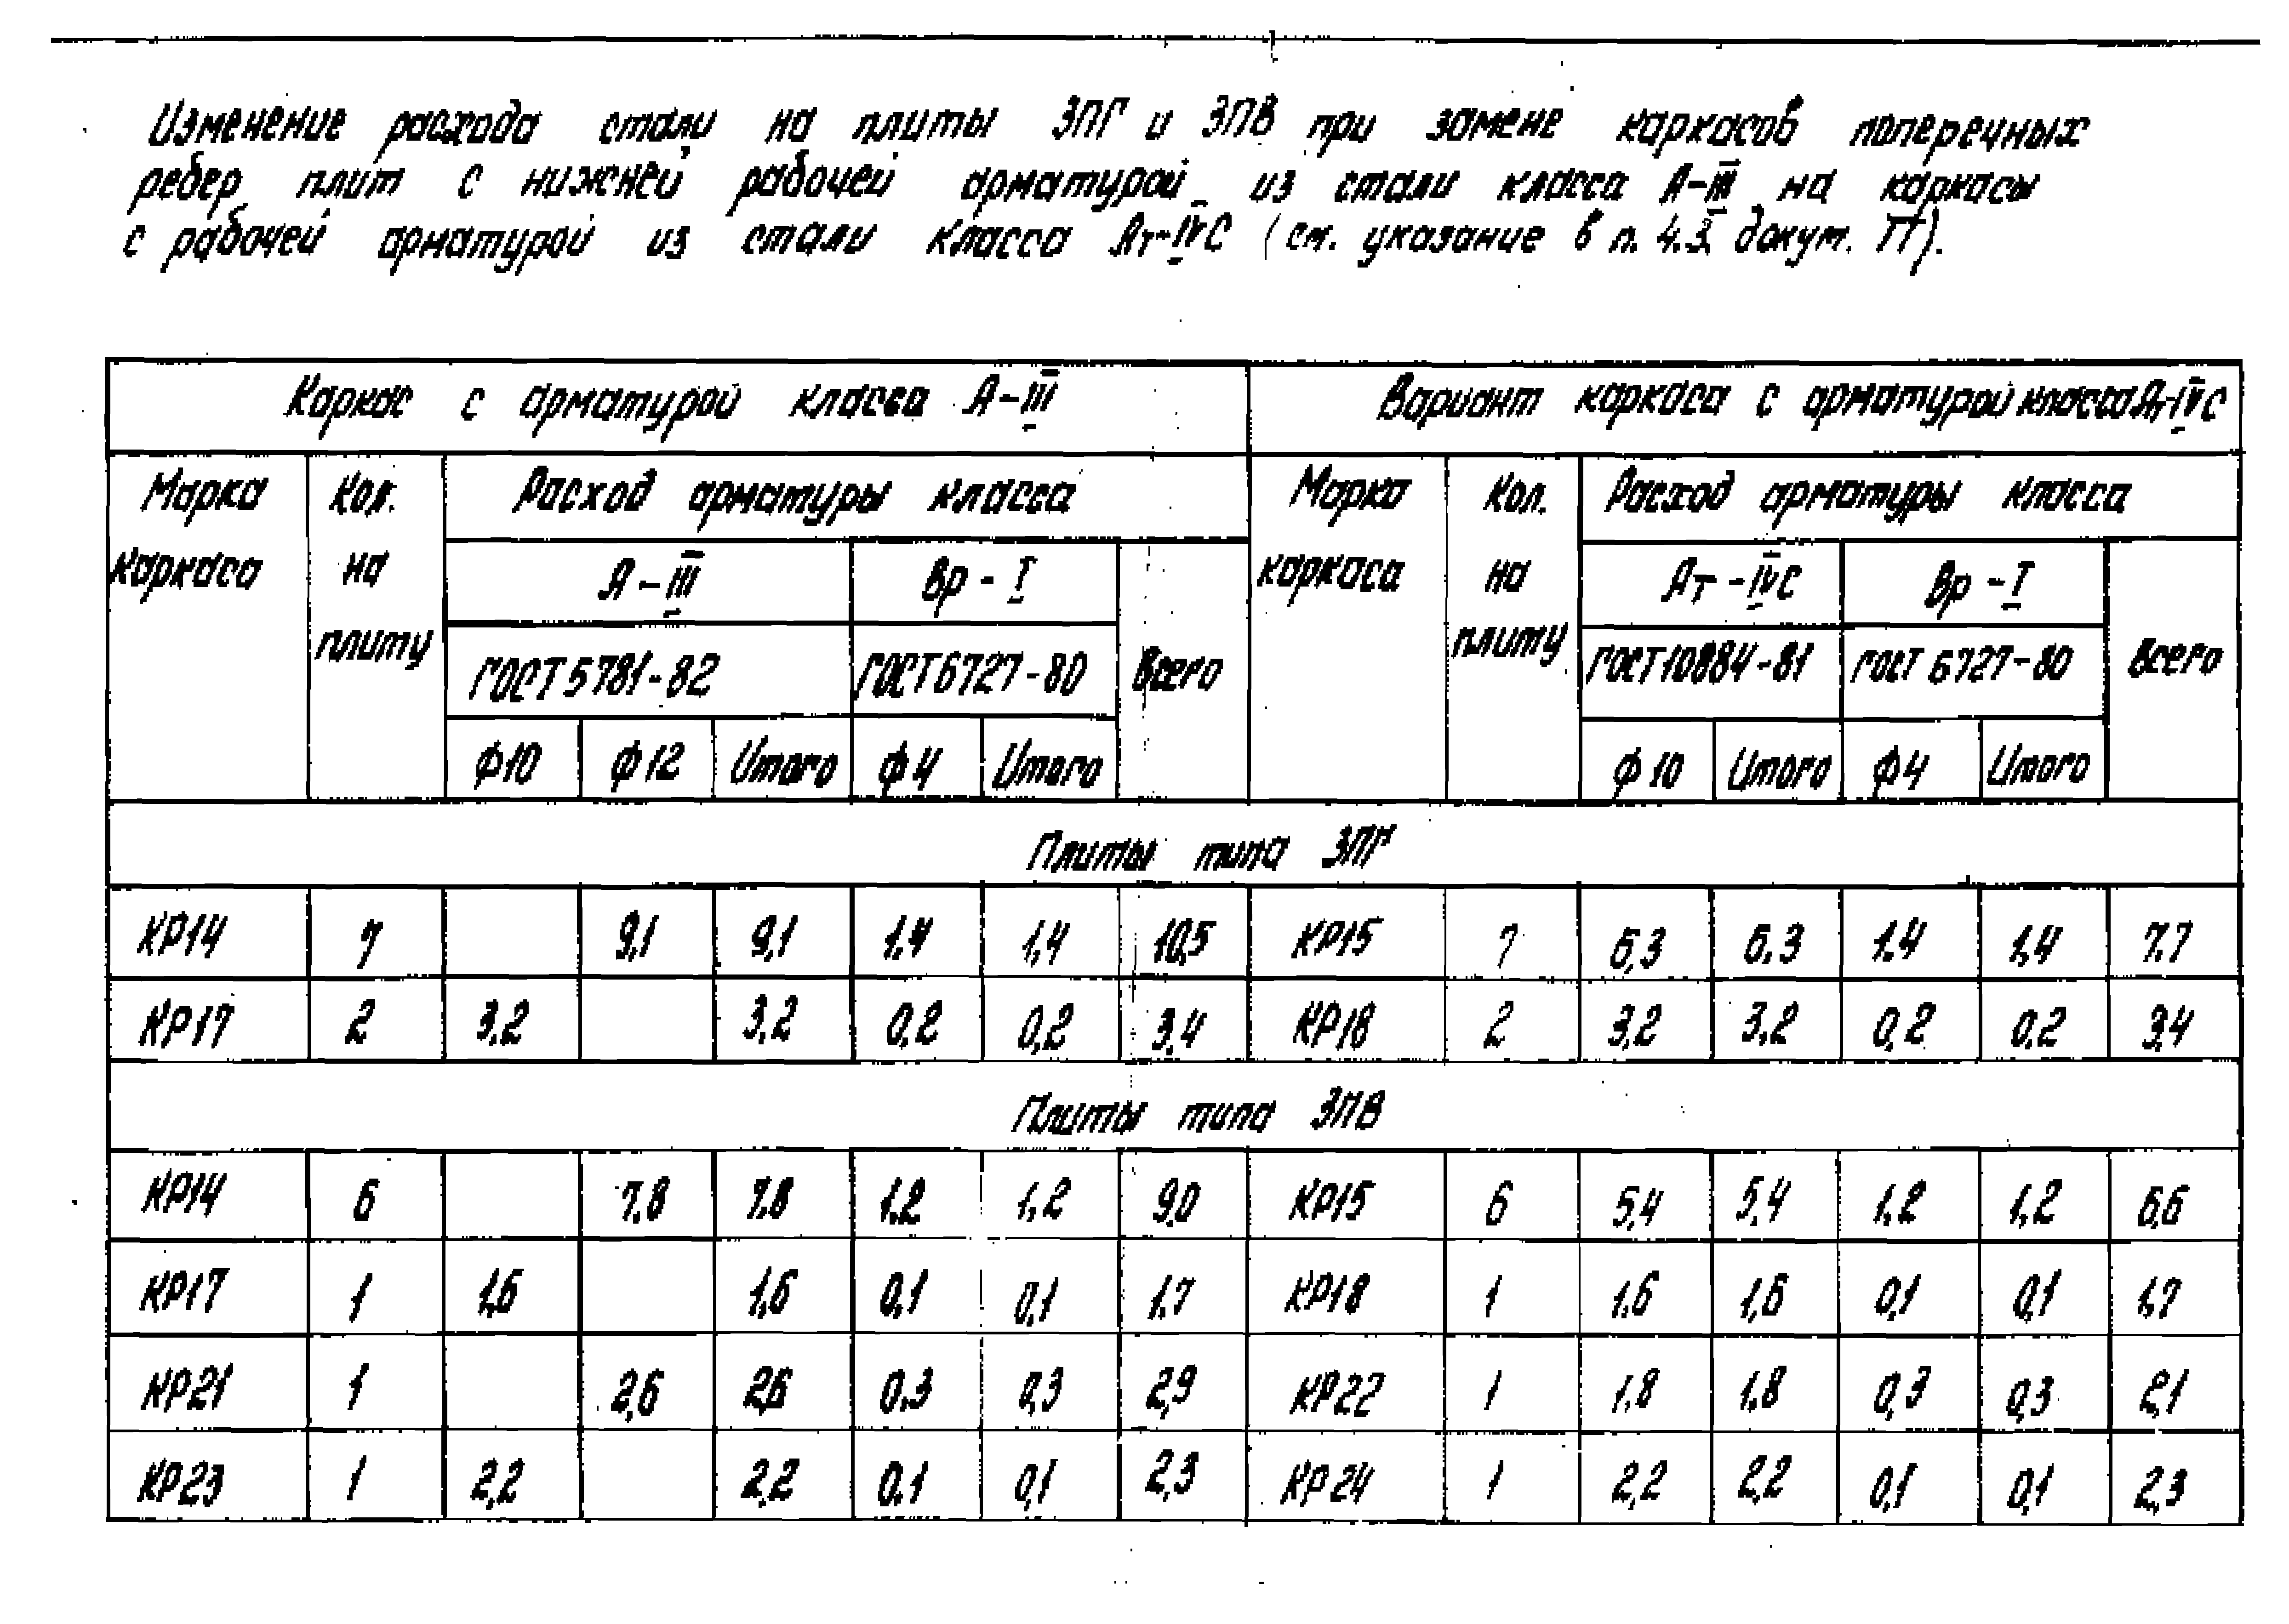 Изменение расхода стали на плиты 3ПГ и 3ПВ при замене каркасов поперечных
ребер плит с нижней рабочей арматурой из стали класса А-III на каркасы
с рабочей арматурой из стали класса Ат-IVС (см. указание в п. 4.3 докум. ТТ).
Каркас с арматурой класса А-III Вариант каркаса с арматурой класса Ат-IVС
Марка каркаса Кол. на плиту Расход арматуры класса Марка каркаса Кол. на плиту Расход арматуры класса
А-III Вр-I Всего Ат-IVС Вр-I Всего
ГОСТ 5781-82 ГОСТ 6727-80 ГОСТ 10884-81 ГОСТ 6727-80
Ф10 Ф12 Итого Ф4 Итого Ф10 Итого Ф4 Итого
Плиты типа 3ПГ
КР14 7 9,1 9,1 1,4 1,4 10,5 КР15 7 6,3 6,3 1,4 1,4 7,7
КР17 2 3,2 3,2 0,2 0,2 3,4 КР18 2 3,2 3,2 0,2 0,2 3,4
Плиты типа 3ПВ
КР14 6 7,8 7,8 1,2 1,2 9,0 КР15 6 5,4 5,4 1,2 1,2 6,6
КР17 1 1,6 1,6 0,1 0,1 1,7 КР18 1 1,6 1,6 0,1 0,1 1,7
КР21 1 2,6 2,6 0,3 0,3 2,9 КР22 1 1,8 1,8 0,3 0,3 2,1
КР23 1 2,2 2,2 0,1 0,1 2,3 КР24 1 2,2 2,2 0,1 0,1 2,3